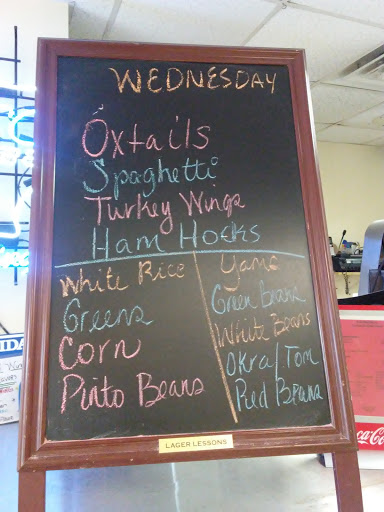 WEDNESDAY
Oxtails
Spaghetti
Turkey Wings
Ham Hocks
White Rice
Greens
Corn
Pinto Beans
Yams
Green Beans
White Beans
Okra/Tom
Red Beans
LAGER LESSONS
Coca-Co